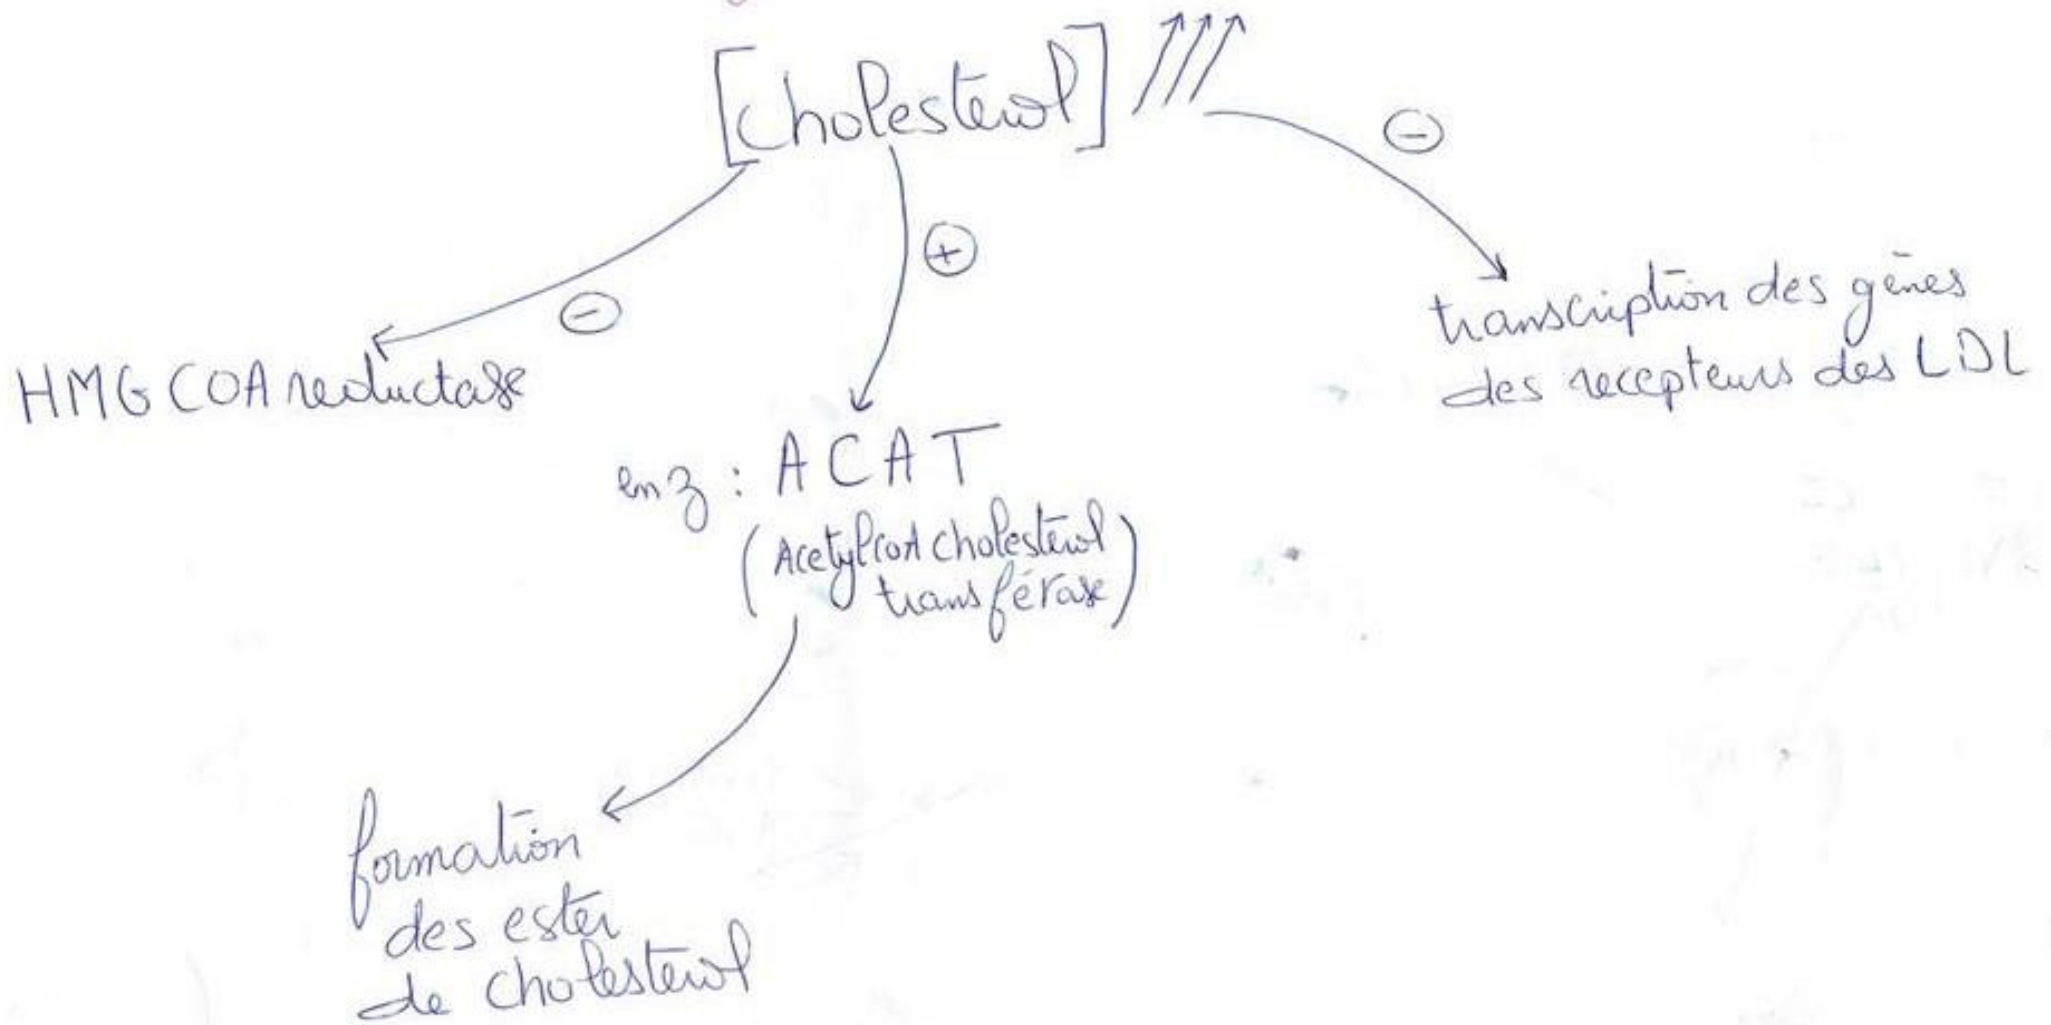 [cholesterol] ↗↗↗
⊖
⊕
⊖
HMG COA reductase
transcription des gènes
des recepteurs des LDL
enz : ACAT
(AcetylcoA cholesterol
transférase)
formation
des ester
de cholesterol